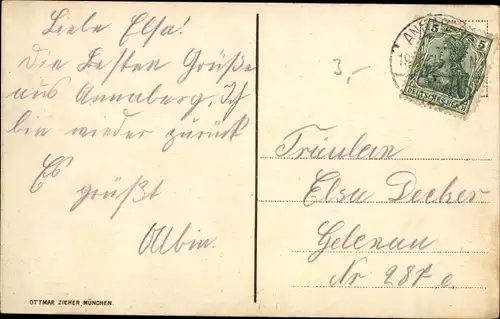 Liebe Elsa!
Die besten Grüße
aus Annaberg, Ich
bin wieder zurück
Es
grüßt
Albin.
OTTMAR ZIEHER, MÜNCHEN.
3,-
5 5
DEUTSCHES REICH
Fräulein
Elsa Decker
Gelenau
Nr 287 e